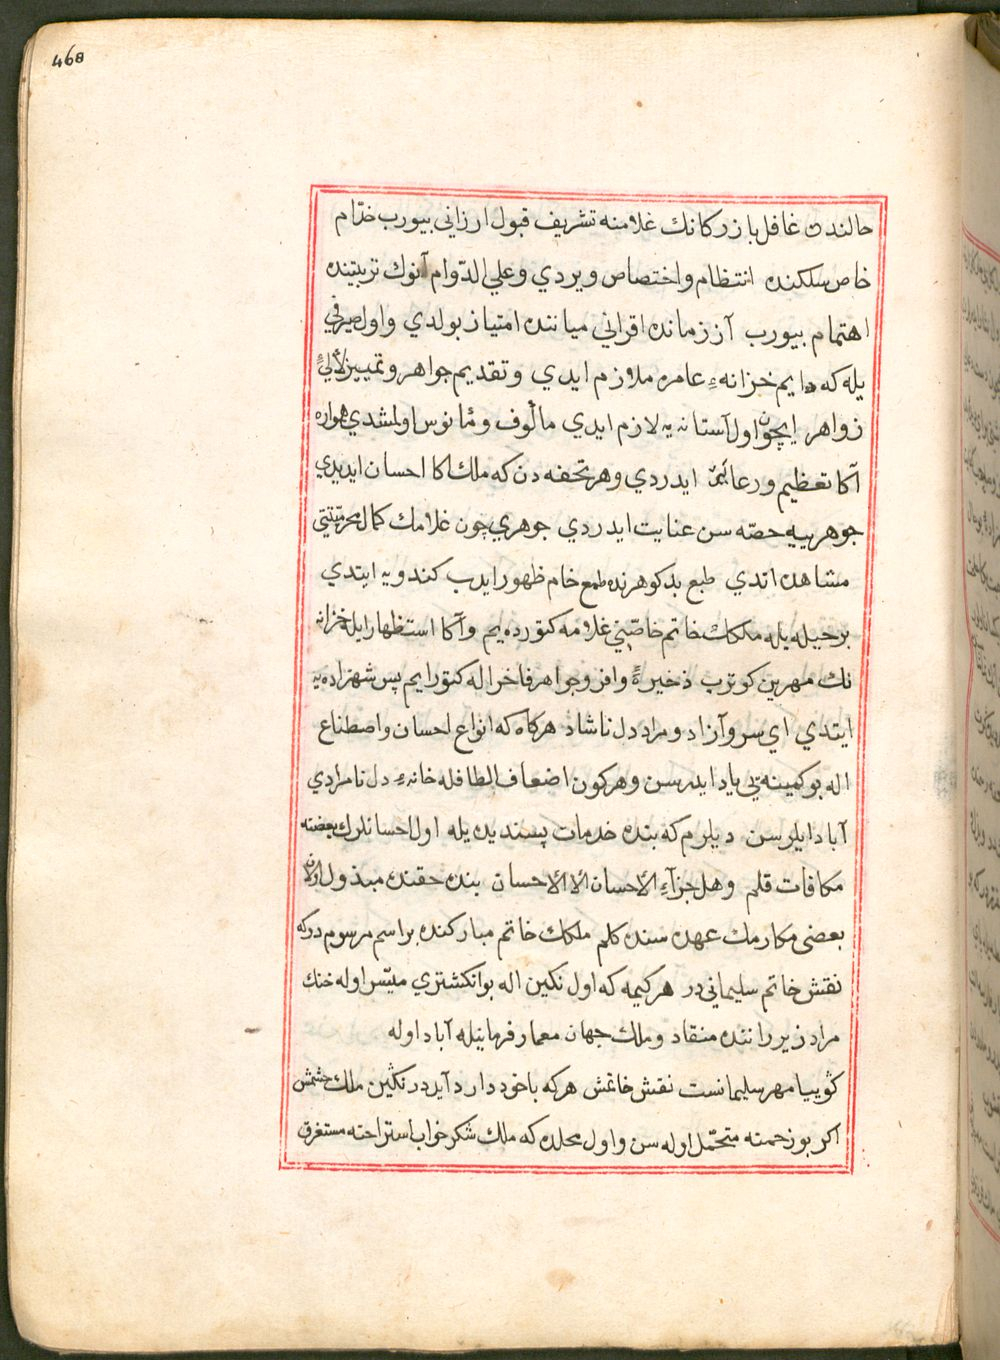 468
حالندن غافل بازركانك غلامنه تشريف قبول ارزاني بيورب خدّام
خاص سلكنده انتظام واختصاص ويردي وعلي الدّوام آنوك تربيتنده
اهتمام بيورب آز زمانده اقراني مياننده امتياز بولدي واول صيرفي
يله كه دايم خزانهٔ عامره ملازم ايدي وتقديم جواهر وتمييز لآلئ
زواهر ايچون اول آستانه يه لازم ايدي مألوف ومأنوس اولمشدي همواره
آكا تعظيم ورعايتلر ايدردي وهر تحفه دن كه ملك اكا احسان ايديدي
جوهرييه حصّه سن عنايت ايدردي جوهري چون غلامك كمال محرميّتني
مشاهده اندي طبع بدكوهرنده طمع خام ظهور ايدب كندويه ايتدي
بر حيله يله ملكك خاتم خاصّني غلامه كتورده يم وآكا استظهار ايله خزانه
نك مهرين كوترب ذخيرهٔ وافر وجواهر فاخر اله كتورايم پس شهزاده يه
ايتدي اي سرو آزاد ومراد دل ناشاد هر كاه كه انواع احسان واصطناع
اله بو كمينه يي ياد ايدرسن وهر كون اضعاف الطافله خانهٔ دل نامرادي
آباد ايلرسن ديلرم كه بنده خدمات پسنديده يله اول احسانلرك بعضنه
مكافات قلم وهل جزآء الاحسان الا الاحسان بنده حقنده مبذول اولان
بعضي مكارمك عهده سنده كلم ملكك خاتم مباركنده بر اسم مرسوم دركه
نقش خاتم سليماني در هر كيمه كه اول نكين اله بو انكشتري ميسّر اوله خنك
مراد زير راننده منقاد وملك جهان معمار فرمانيله آباد اوله
كوييا مهر سليمانست نقش خاتمش هركه با خود دارد آيد در نكين ملك جشمش
اكر بو زحمته متحمّل اوله سن واول محلده كه ملك شكر خواب استراحته مستغرق